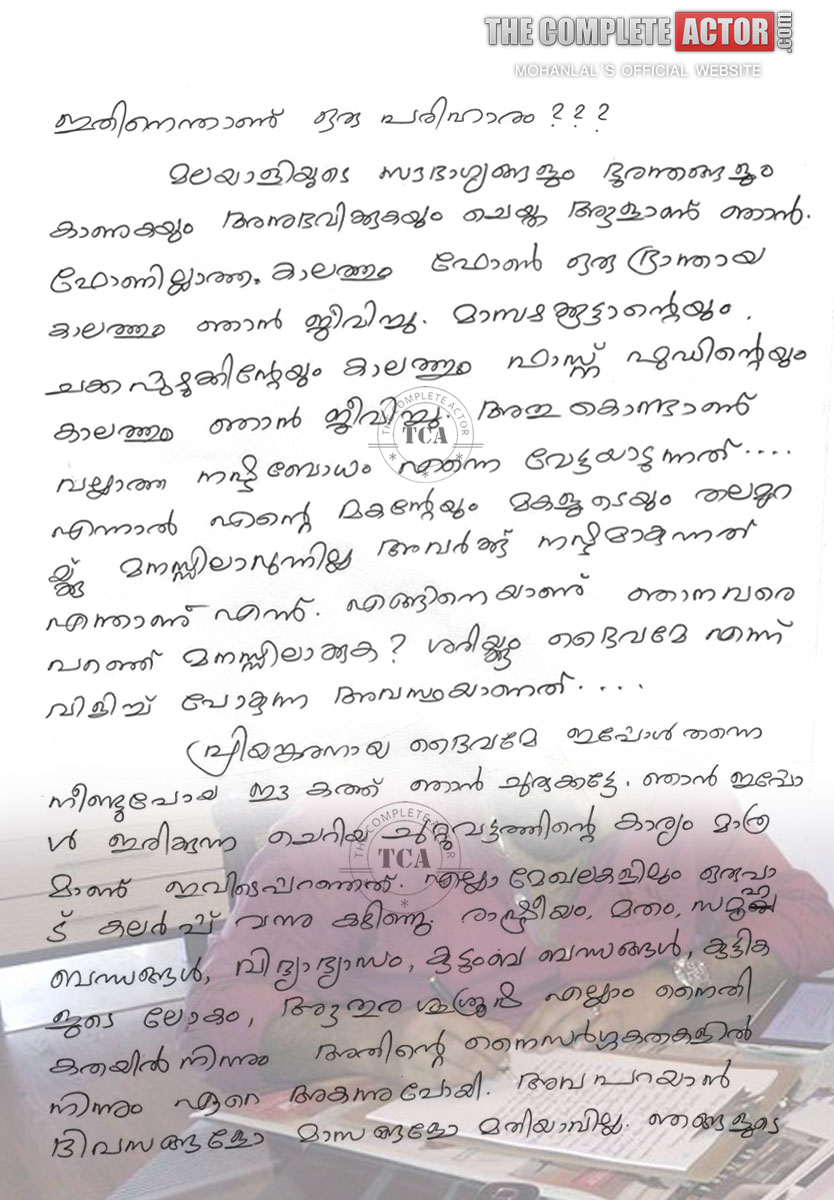 THE COMPLETE ACTOR.com
MOHANLAL'S OFFICIAL WEBSITE
ഇതിനെന്താണ് ഒരു പരിഹാരം ? ? ?
മലയാളിയുടെ സൗഭാഗ്യങ്ങളും ദുരന്തങ്ങളും
കാണുകയും അനുഭവിക്കുകയും ചെയ്ത ആളാണ് ഞാൻ.
ഫോണില്ലാത്ത കാലത്തും ഫോൺ ഒരു ഭ്രാന്തായ
കാലത്തും ഞാൻ ജീവിച്ചു. മാമ്പഴക്കൂട്ടാന്റെയും,
ചക്ക പുഴുക്കിന്റേയും കാലത്തും ഫാസ്റ്റ് ഫുഡിന്റെയും
കാലത്തും ഞാൻ ജീവിച്ചു. അതു കൊണ്ടാണ്
വല്ലാത്ത നഷ്ടബോധം എന്നെ വേട്ടയാടുന്നത് ....
എന്നാൽ എന്റെ മകന്റേയും മകളുടെയും തലമുറ
യ്ക്കു മനസ്സിലാവുന്നില്ല അവർക്ക് നഷ്ടമാകുന്നത്
എന്താണ് എന്ന്. എങ്ങിനെയാണ് ഞാനവരെ
പറഞ്ഞ് മനസ്സിലാക്കുക ? ശരിയ്ക്കും ദൈവമേ എന്ന്
വിളിച്ച് പോകുന്ന അവസ്ഥയാണത് ....
പ്രിയങ്കരനായ ദൈവമേ ഇപ്പോൾ തന്നെ
നീണ്ടുപോയ ഈ കത്ത് ഞാൻ ചുരുക്കട്ടെ. ഞാൻ ഇപ്പോ
ൾ ഇരിക്കുന്ന ചെറിയ ചുറ്റുവട്ടത്തിന്റെ കാര്യം മാത്ര
മാണ് ഇവിടെപറഞ്ഞത്. എല്ലാ മേഖലകളിലും ഒരുപാ
ട് കലർപ്പ് വന്നു കഴിഞ്ഞു. രാഷ്ട്രീയം, മതം, സമൂഹ
ബന്ധങ്ങൾ, വിദ്യാഭ്യാസം, കുടുംബ ബന്ധങ്ങൾ, കുട്ടിക
ളുടെ ലോകം, ആതുര ശുശ്രൂഷ എല്ലാം നൈതി
കതയിൽ നിന്നും അതിന്റെ നൈസർഗ്ഗികതകളിൽ
നിന്നും ഏറെ അകന്നുപോയി. അവ പറയാൻ
ദിവസങ്ങളോ മാസങ്ങളോ മതിയാവില്ല. ഞങ്ങളുടെ
THE COMPLETE ACTOR
TCA
THE COMPLETE ACTOR
TCA